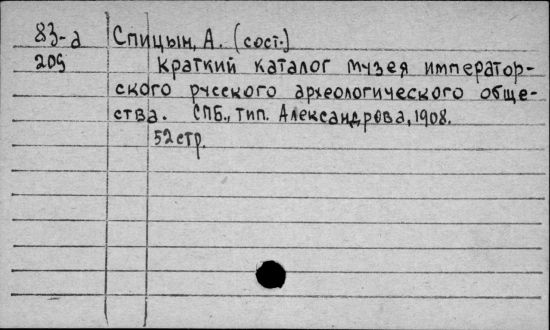 83-а Спицын, А. (сост.)
209 Краткий каталог музея император-
ского русского археологического обще-
ства. СПБ., тип. Александрова, 1908.
52стр.